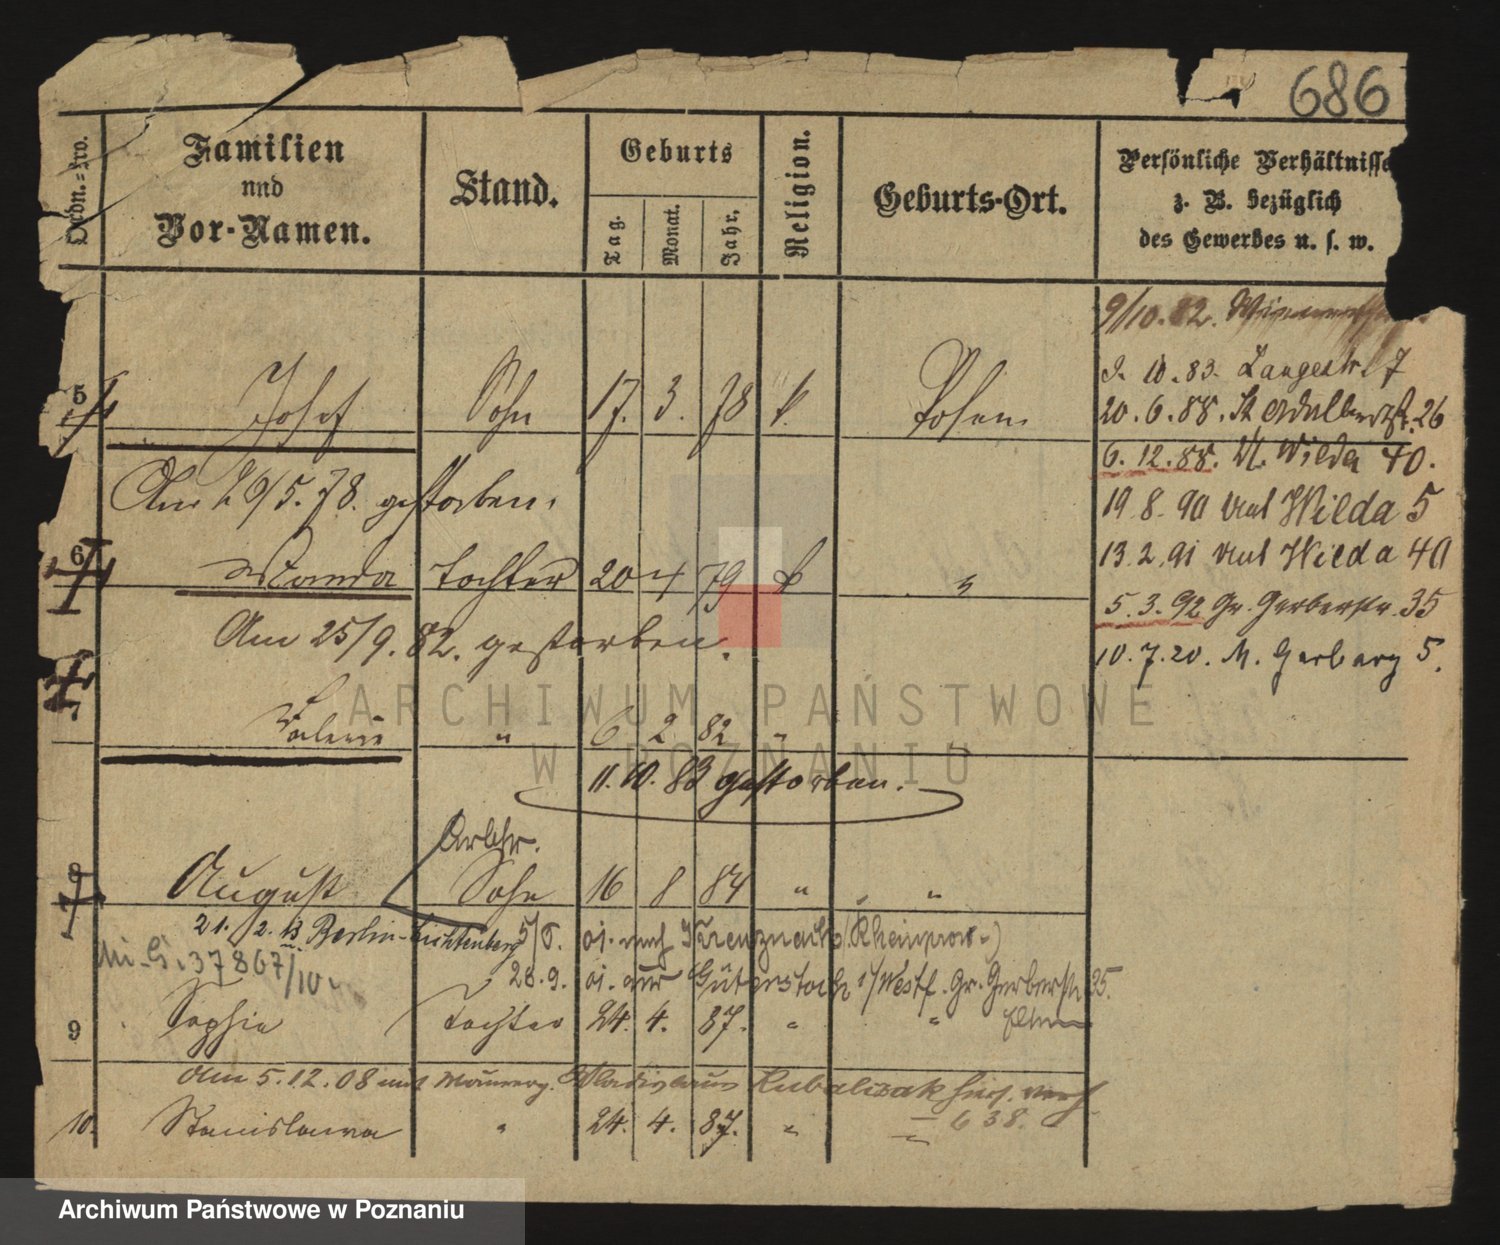 686
Ordn.-Nro.
Familien
und
Vor-Namen.
Stand.
Geburts
Tag.
Monat.
Jahr.
Religion.
Geburts-Ort.
Persönliche Verhältnisse
z. B. bezüglich
des Gewerbes u. s. w.
9/10. 82.
10. 83. Langestr. 7
5 Josef Sohn 17. 3. 78 k. Posen
20. 6. 88. St Adalbertstr. 26
6. 12. 88. Wilda 40.
Am 29/5. 78. gestorben.
19. 8. 90 Wilda 5
6 Wanda Tochter 20 4 79 k "
13. 2. 91 Wilda 40
5. 3. 92 Gr. Gerberstr. 35
Am 25/9. 82. gestorben.
10. 7. 20. M. Gerberg 5.
7 Valerie " 6 2 82 "
11. 10. 83 gestorben.
Arbtr.
8 August Sohn 16 8 84 " "
21. 2. 13 Berlin-Lichtenberg 5/8. nach Kreuznach (Rheinprov.)
37867/10
28. 9. aus Gütersloh i/Westf. Gr. Gerberstr 35.
Eltern
9 Sophie Tochter 24. 4. 87. " "
Am 5. 12. 08 mit Maurerg. Wladislaus Kubaliczak hier verh.
638.
10. Stanislawa " 24. 4. 87. " "
ARCHIWUM PAŃSTWOWE
W POZNANIU
Archiwum Państwowe w Poznaniu